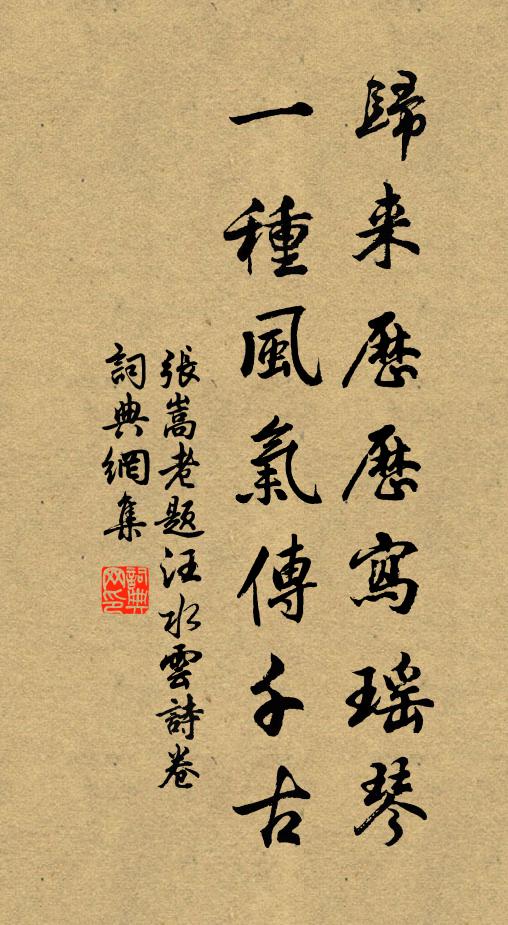 歸来歷歷寫瑶琴
一種風氣傳千古
張嵩老題汪水雲詩卷
詞典網集
詞典网印